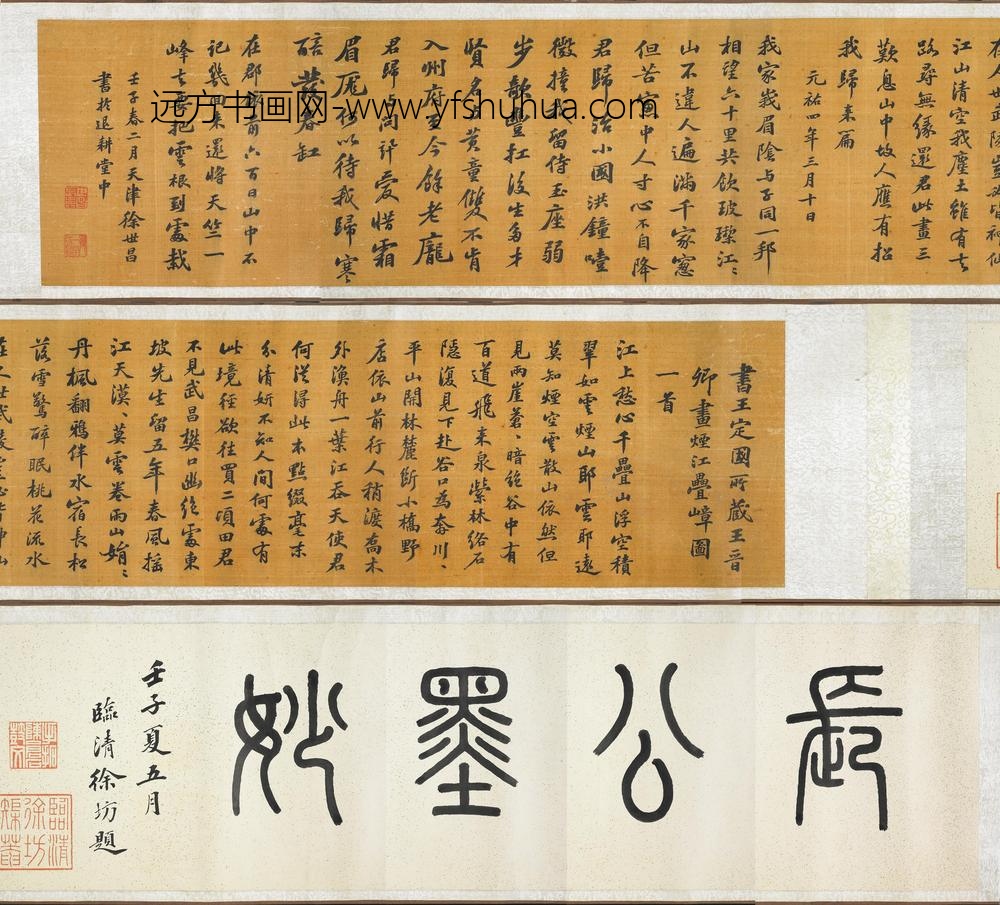 在人世武陵豈必皆神仙
江山清空我塵土雖有去
路尋無緣還君此畫三
歎息山中故人應有招
我歸来篇
元祐四年三月十日
我家峩眉陰与子同一邦
相望六十里共飲玻瓈江〻
山不違人遍滿千家窓
但苦窓中人寸心不自降
君歸治小國洪鐘噎
微撞我留侍玉座弱
步欹豐扛後生多才
賢名與黃童雙不肯
入州府至今餘老龐
君歸与問訊愛惜霜
眉厖何以待我歸寒
醅發春缸
在郡依前六百日山中不
記幾回来還將天竺一
峰去欲把雲根到處栽
壬子春二月天津徐世昌
書於退耕堂中
远方书画网-www.yfshuhua.com
書王定國所藏王晉
卿畫煙江疊嶂圖
一首
江上愁心千疊山浮空積
翠如雲煙山耶雲耶遠
莫知煙空雲散山依然但
見兩崖蒼〻暗絶谷中有
百道飛来泉縈林絡石
隱復見下赴谷口為奔川〻
平山開林麓斷小橋野
店依山前行人稍渡喬木
外漁舟一葉江吞天使君
何從得此本點綴毫末
分清妍不知人間何處有
此境徑欲往買二頃田君
不見武昌樊口幽絶處東
坡先生留五年春風揺
江天漠〻莫雲卷雨山娟〻
丹楓翻鴉伴水宿長松
落雪驚醉眠桃花流水
長公墨妙
壬子夏五月
臨清徐坊題
臨清徐坊